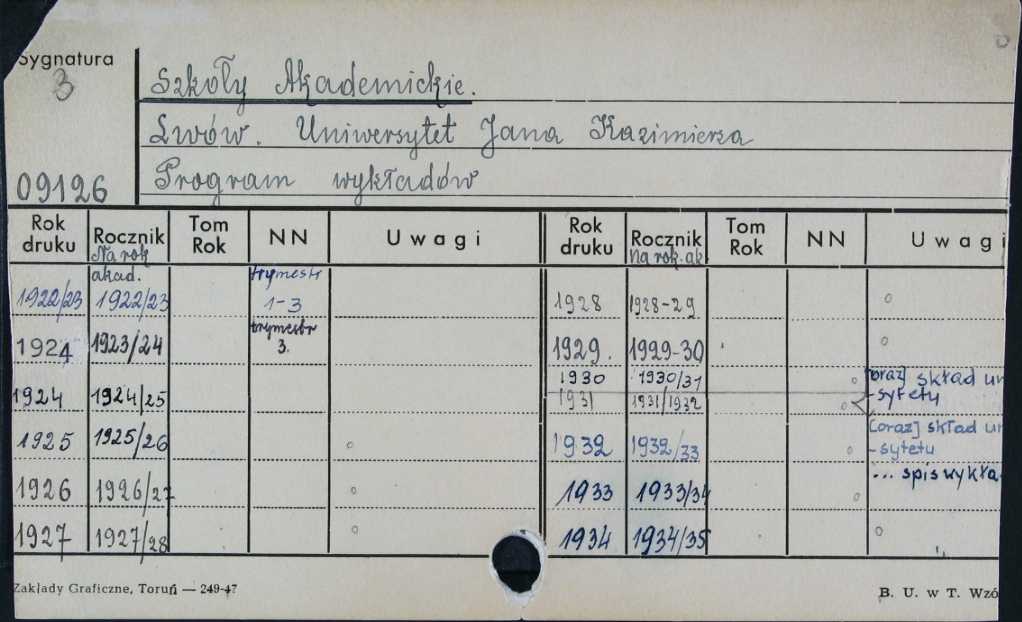 Sygnatura
3
Szkoły Akademickie.
Lwów. Uniwersytet Jana Kazimierza
09126 Program wykładów
Rok druku Rocznik Tom Rok NN Uwagi Rok druku Rocznik Tom Rok NN Uwagi
Na rok akad. Na rok. ak.
1922/23 1922/23 trymestr 1-3 1928 1928-29
1924 1923/24 trymestr 3. 1929. 1929-30
1930 1930/31 [oraz] skład
1924 1924/25 1931 1931/1932 -sytetu
1925 1925/26 1932 1932/33 [oraz] skład
-sytetu
1926 1926/27 1933 1933/34 ... spis
1927 1927/28 1934 1934/35
Zakłady Graficzne, Toruń — 249-47 B. U. w T.